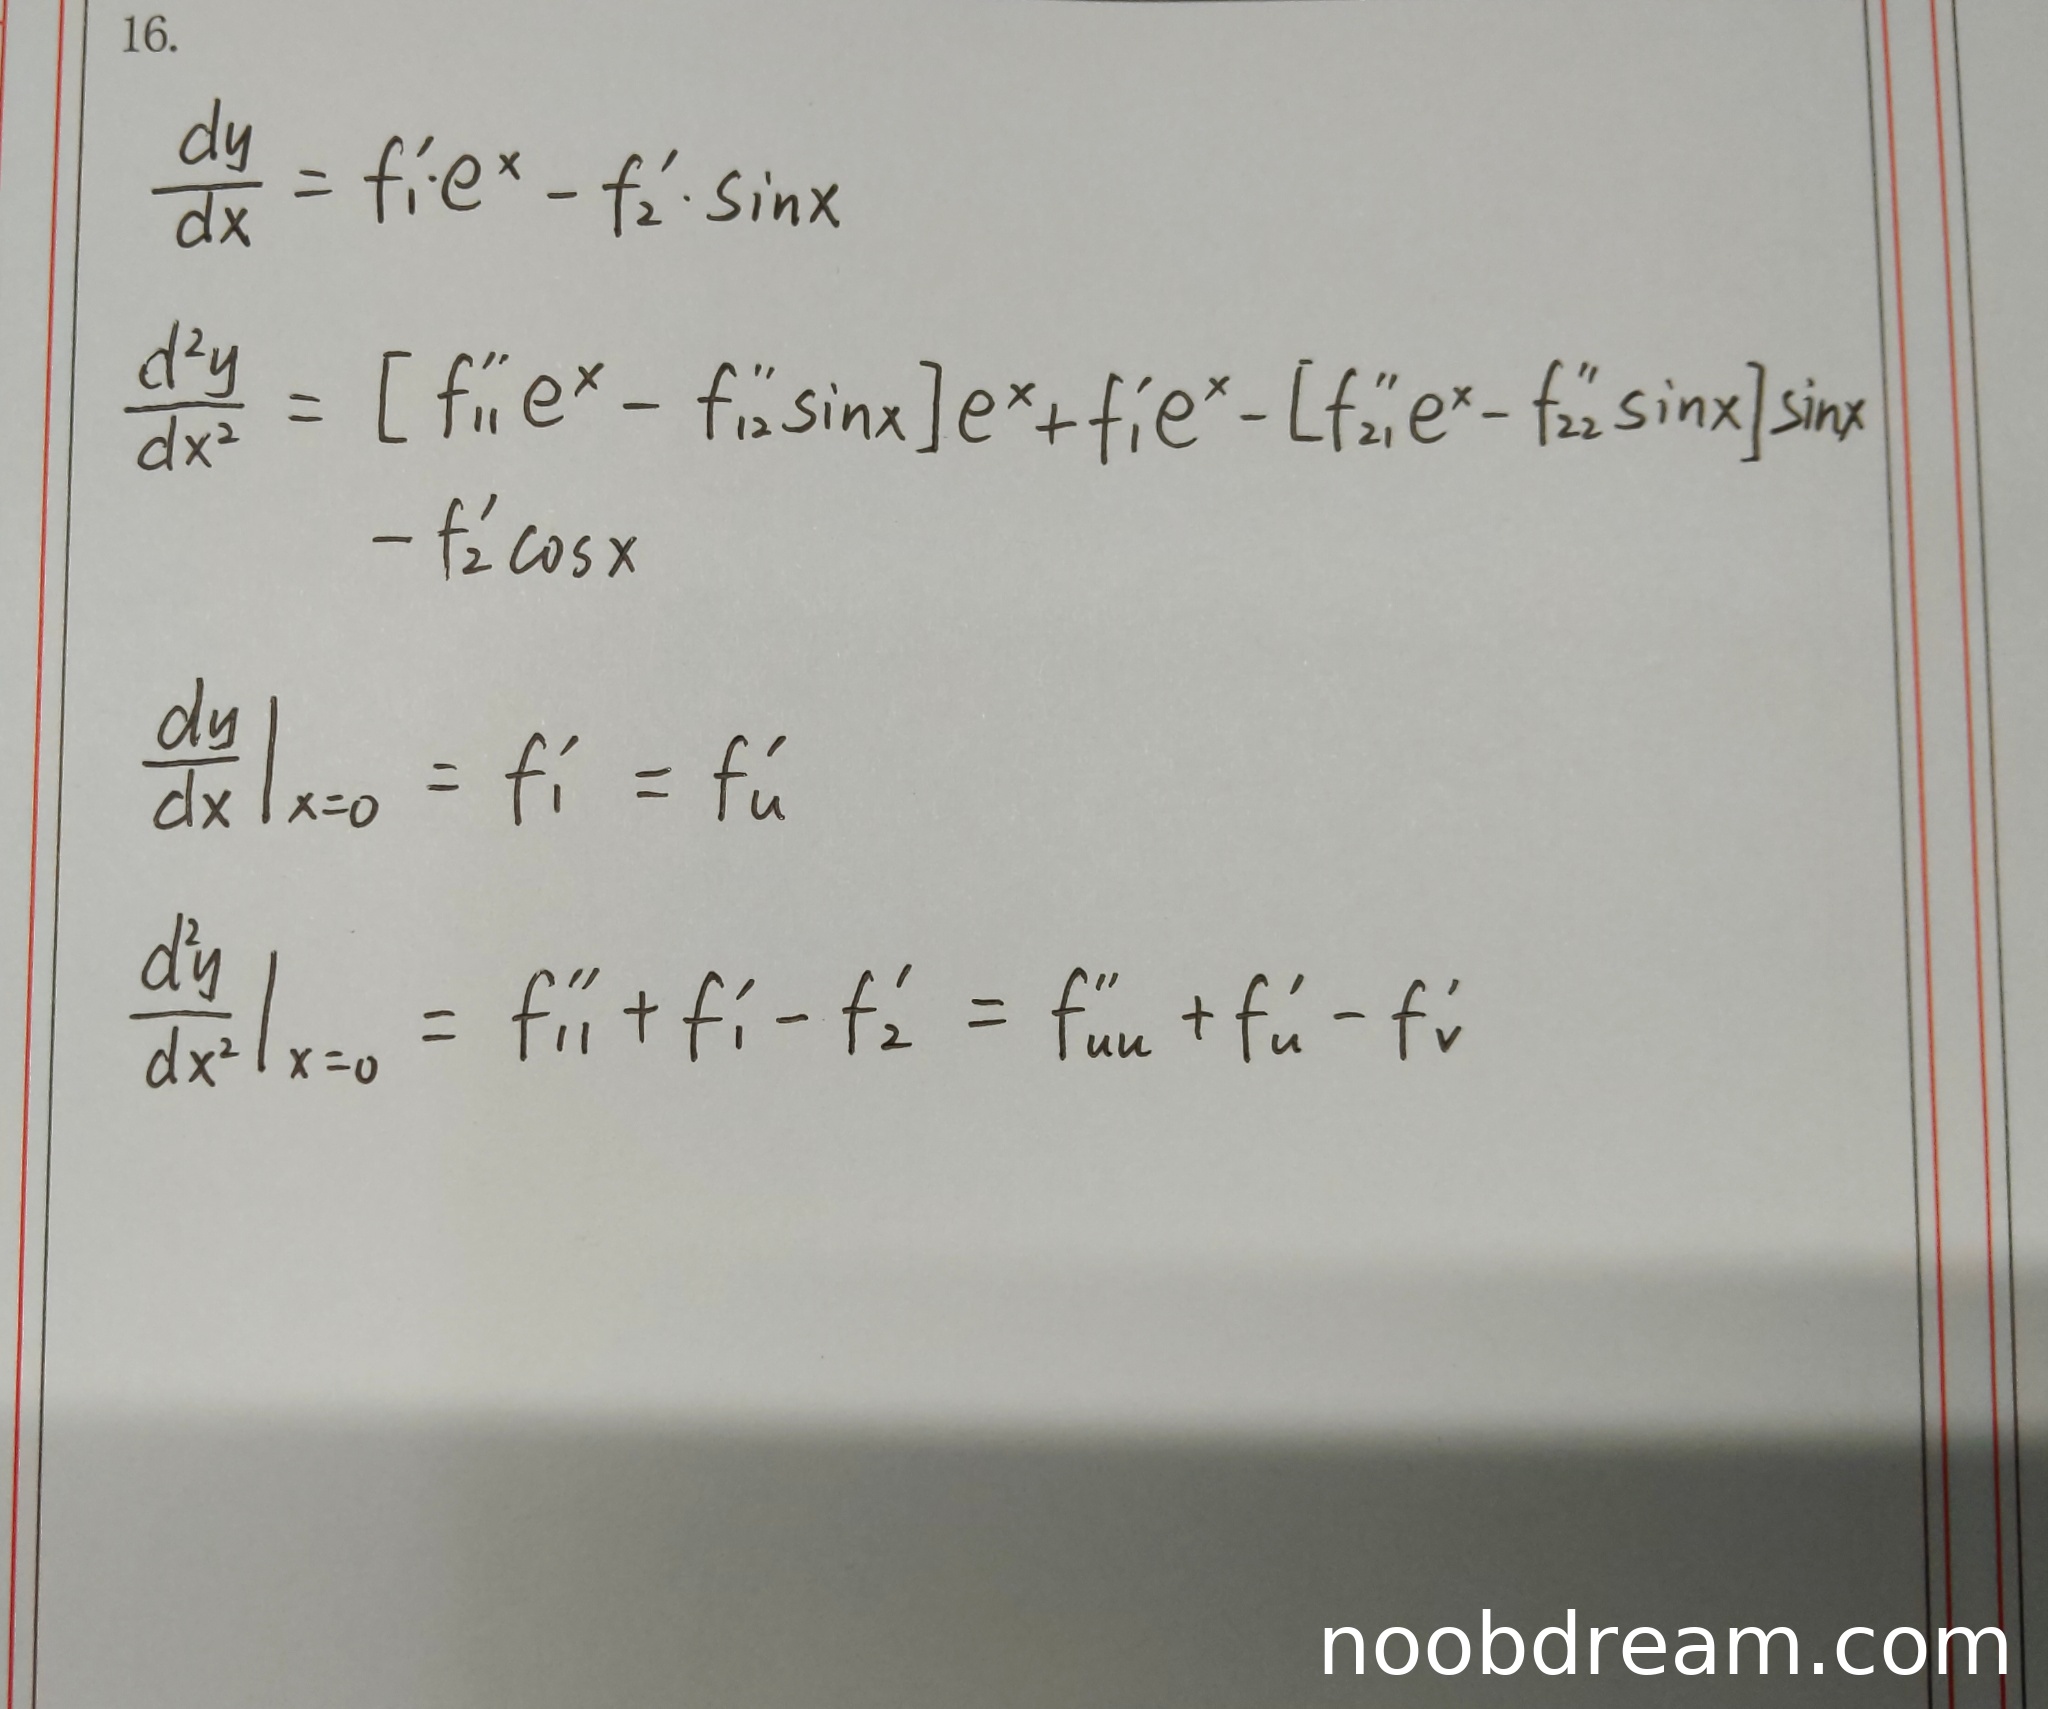 16.
dy/dx = f₁′·eˣ − f₂′·sinx
d²y/dx² = [f₁₁″eˣ − f₁₂″sinx]eˣ + f₁′eˣ − [f₂₁″eˣ − f₂₂″sinx]sinx
− f₂′cosx
dy/dx |ₓ₌₀ = f₁′ = fᵤ′
d²y/dx² |ₓ₌₀ = f₁₁″ + f₁′ − f₂′ = fᵤᵤ″ + fᵤ′ − fᵥ′
noobdream.com